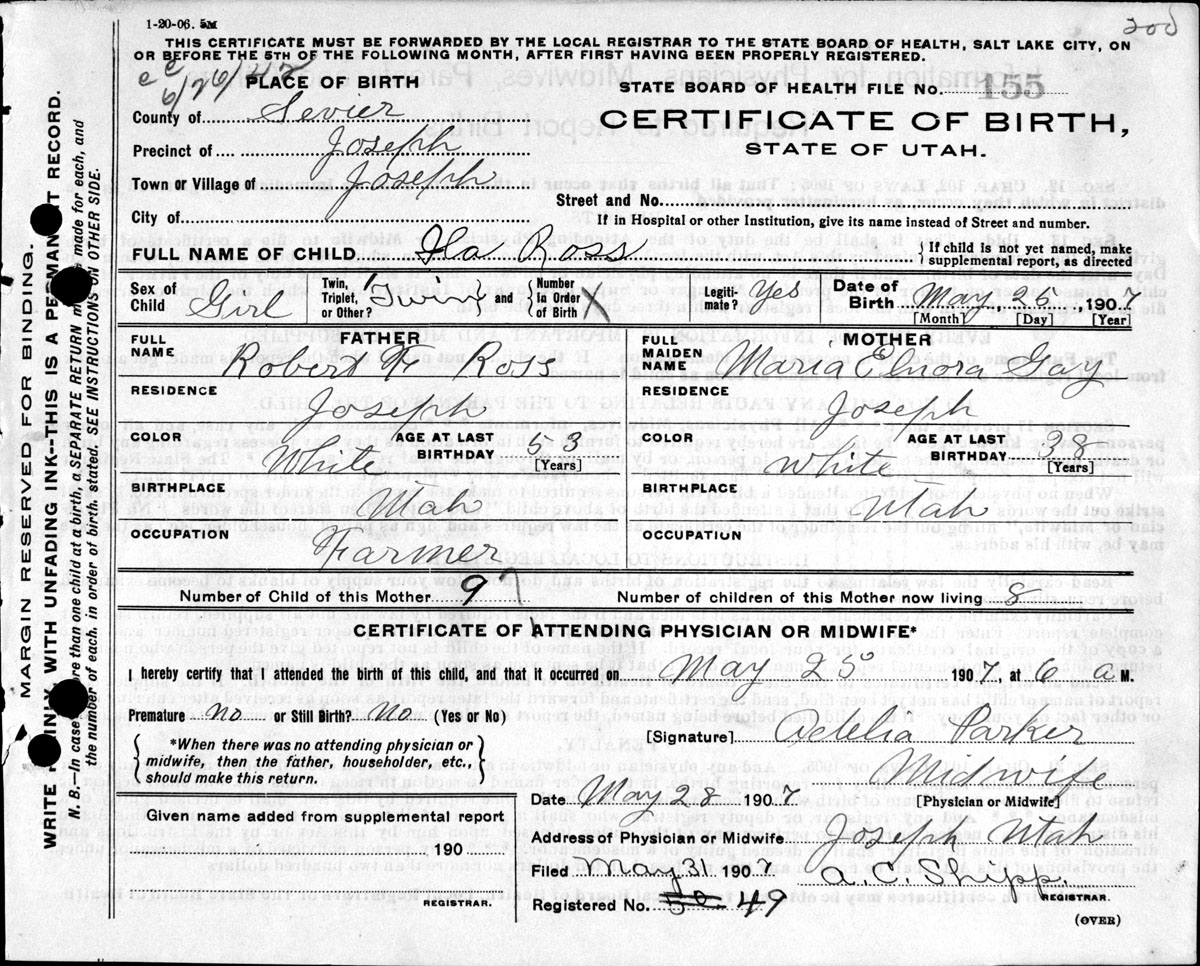 1-20-06. 5M
205
THIS CERTIFICATE MUST BE FORWARDED BY THE LOCAL REGISTRAR TO THE STATE BOARD OF HEALTH, SALT LAKE CITY, ON
OR BEFORE THE 5TH OF THE FOLLOWING MONTH, AFTER FIRST HAVING BEEN PROPERLY REGISTERED.
6/26/42
PLACE OF BIRTH
STATE BOARD OF HEALTH FILE NO. 155
County of Sevier
CERTIFICATE OF BIRTH,
Precinct of Joseph
STATE OF UTAH.
Town or Village of Joseph
Street and No.
City of
If in Hospital or other Institution, give its name instead of Street and number.
FULL NAME OF CHILD Ila Ross { If child is not yet named, make supplemental report, as directed
Sex of Child Girl Twin, Triplet, or Other? Twin and { Number In Order of Birth X Legitimate? Yes Date of Birth May 25, 1907
[Month] [Day] [Year]
FATHER
MOTHER
FULL NAME Robert H Ross
FULL MAIDEN NAME Maria Elnora Gay
RESIDENCE Joseph
RESIDENCE Joseph
COLOR White AGE AT LAST BIRTHDAY 53 [Years]
COLOR White AGE AT LAST BIRTHDAY 38 [Years]
BIRTHPLACE Utah
BIRTHPLACE Utah
OCCUPATION Farmer
OCCUPATION
Number of Child of this Mother 9
Number of children of this Mother now living 8
CERTIFICATE OF ATTENDING PHYSICIAN OR MIDWIFE*
I hereby certify that I attended the birth of this child, and that it occurred on May 25 1907, at 6 a M.
Premature no or Still Birth? No (Yes or No)
{ *When there was no attending physician or
midwife, then the father, householder, etc.,
should make this return. }
[Signature] Parker
Midwife
[Physician or Midwife]
Given name added from supplemental report
190
REGISTRAR.
Date May 28 1907
Address of Physician or Midwife Joseph Utah
Filed May 31 1907 A. C. Shipp.
REGISTRAR.
Registered No. 30 49
(OVER)
MARGIN RESERVED FOR BINDING.
WRITE PLAINLY WITH UNFADING INK--THIS IS A PERMANENT RECORD.
N. B.—In case of more than one child at a birth, a SEPARATE RETURN must be made for each, and
the number of each, in order of birth, stated. SEE INSTRUCTIONS ON OTHER SIDE.